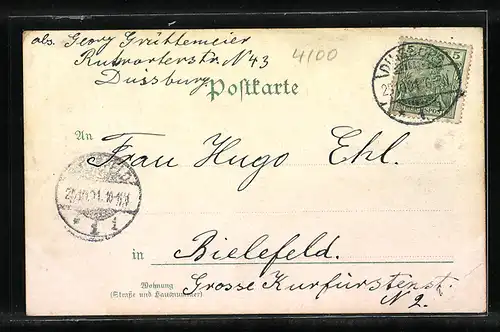 abs. Georg Grüttemeier
Ruhrorterstr. N 43
Duisburg.
4100
Postkarte
5
An
Frau Hugo Ehl.
in Bielefeld.
Wohnung
(Straße und Hausnummer)
Grosse Kurfürstenst.
N 2.